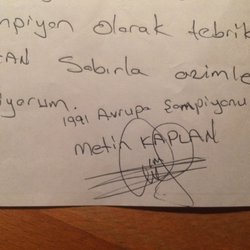 mpiyon olarak tebrik
AN Sabırla azimle
iyorum.
1991 Avrupa Şampiyonu
Metin KAPLAN